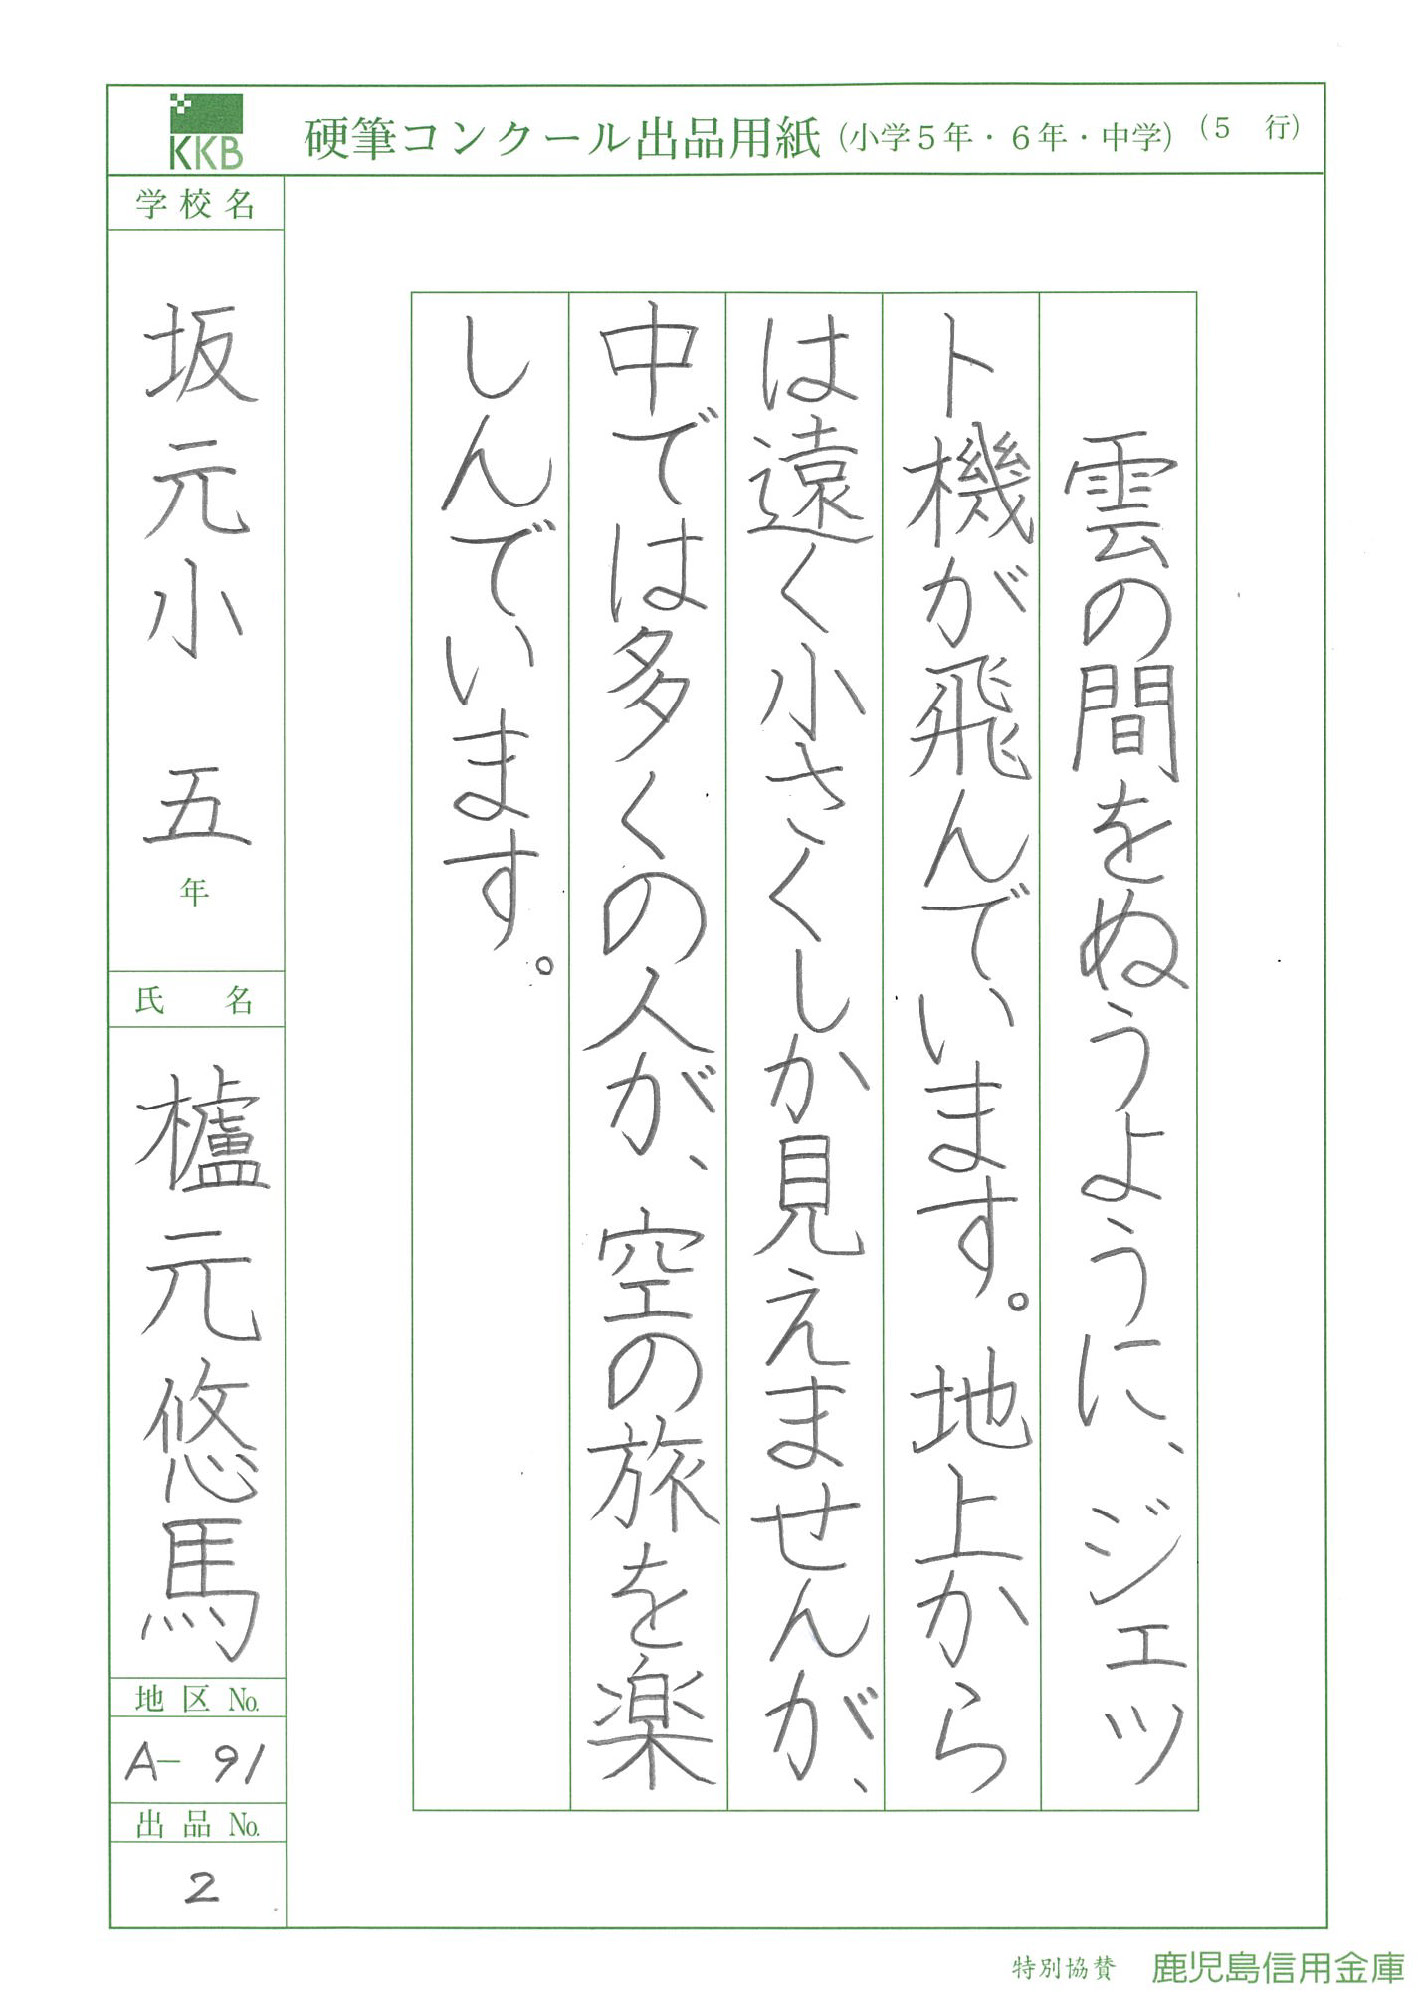 KKB
硬筆コンクール出品用紙（小学5年・6年・中学）（5 行）
雲の間をぬうように、ジェッ
ト機が飛んでいます。地上から
は遠く小さくしか見えませんが、
中では多くの人が、空の旅を楽
しんでいます。
学校名
坂元小 五年
氏 名
櫨元悠馬
地区 No.
A-91
出品 No.
2
特別協賛 鹿児島信用金庫